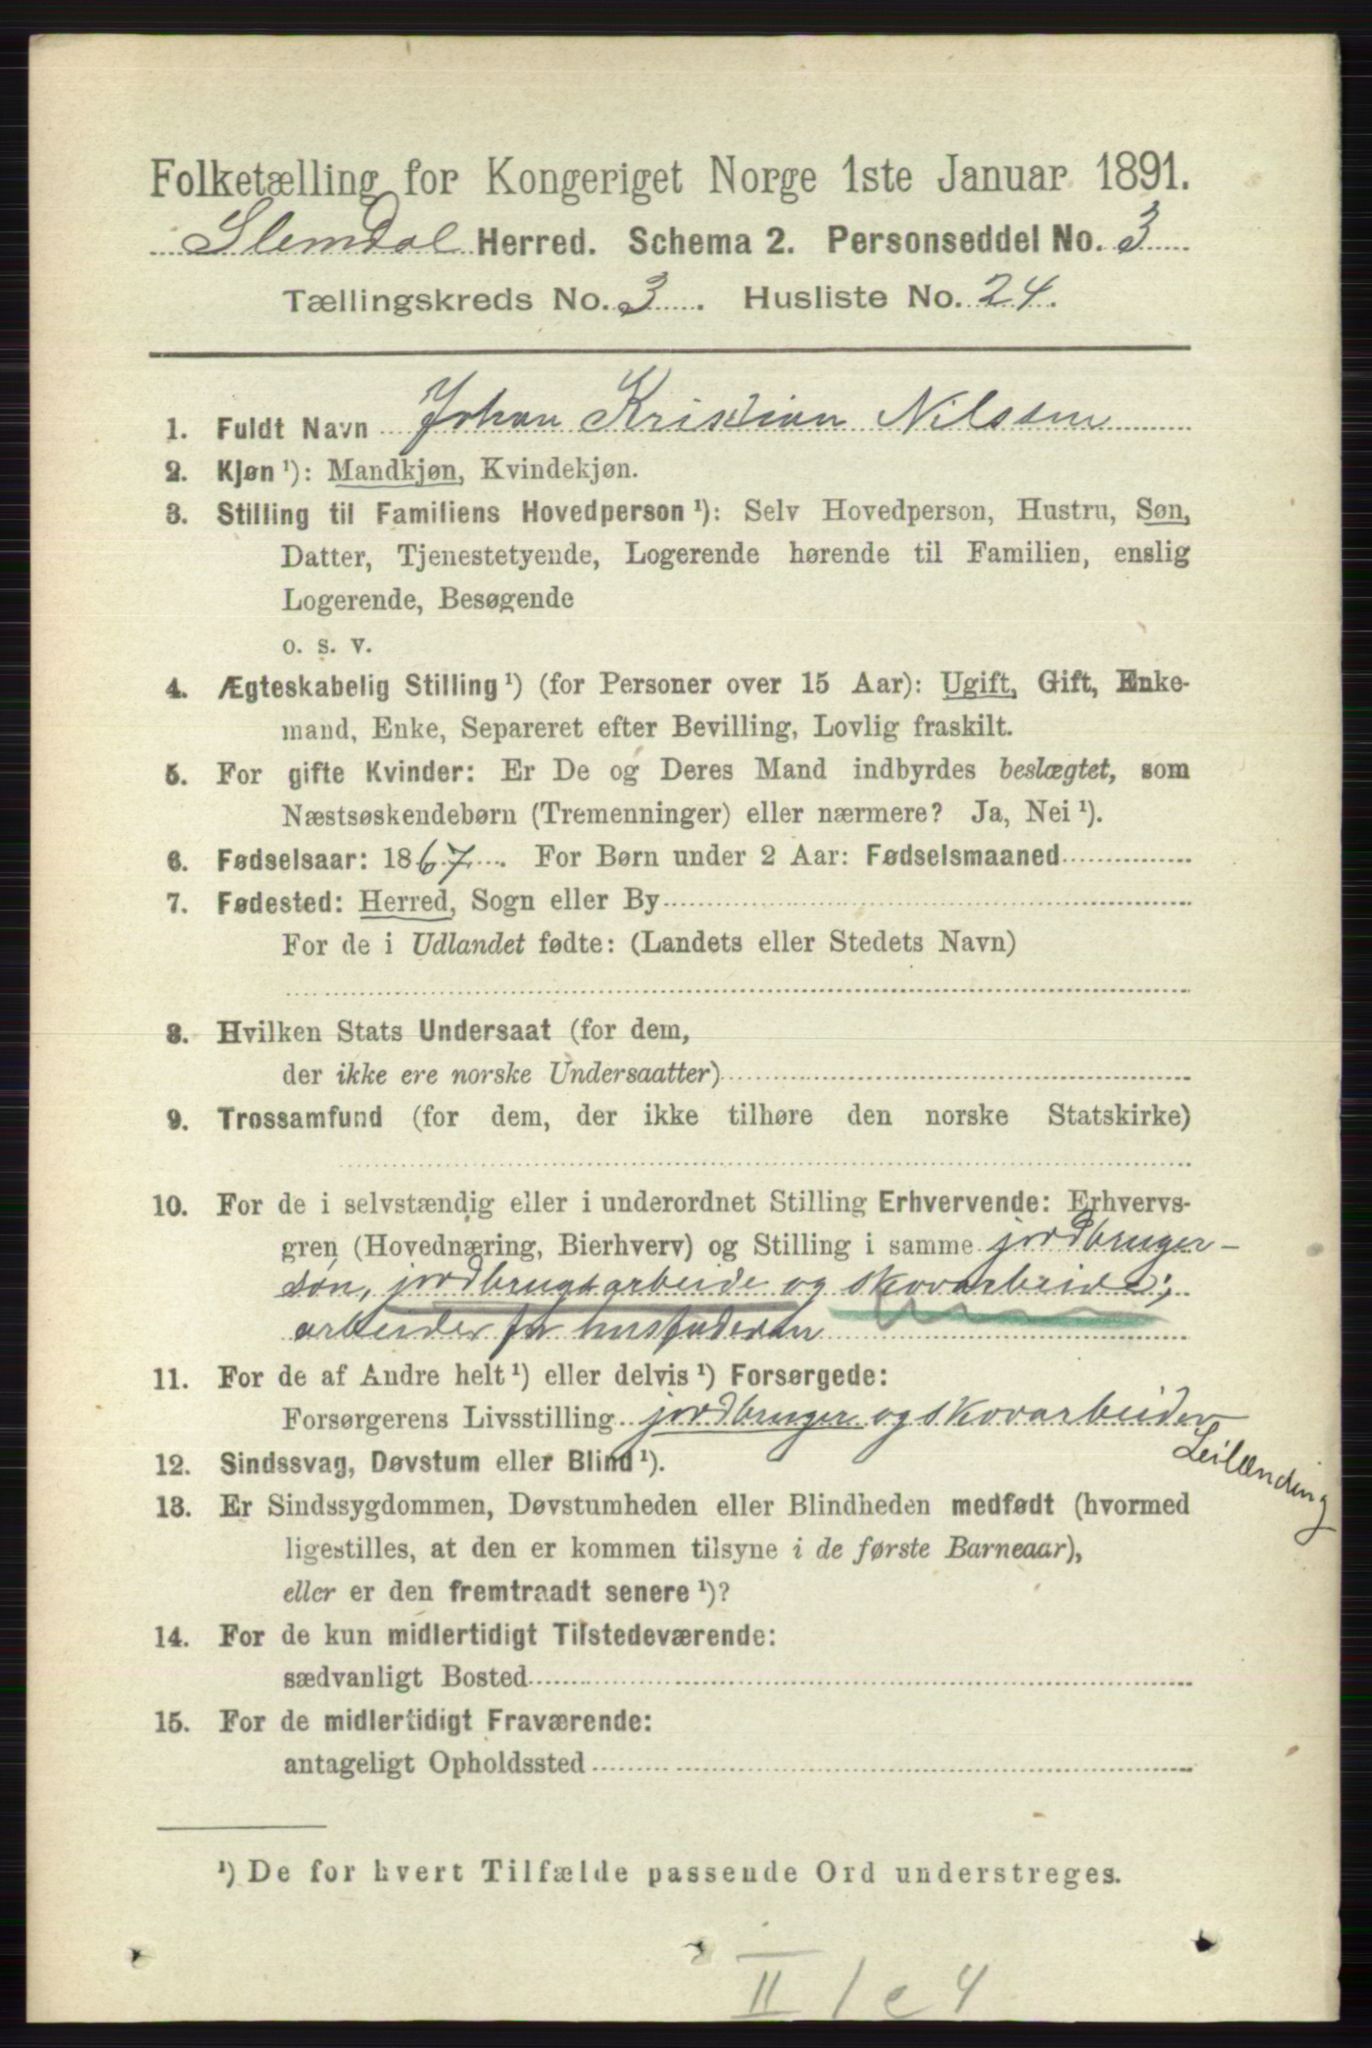 Folketælling for Kongeriget Norge 1ste Januar 1891.
Slemdal Herred. Schema 2. Personseddel No. 3
Tællingskreds No. 3. Husliste No. 24.
1. Fuldt Navn Johan Kristian Nilssen
2. Kjøn ¹): Mandkjøn, Kvindekjøn.
3. Stilling til Familiens Hovedperson ¹): Selv Hovedperson, Hustru, Søn,
Datter, Tjenestetyende, Logerende hørende til Familien, enslig
Logerende, Besøgende
o. s. v.
4. Ægteskabelig Stilling ¹) (for Personer over 15 Aar): Ugift, Gift, Enke-
mand, Enke, Separeret efter Bevilling, Lovlig fraskilt.
5. For gifte Kvinder: Er De og Deres Mand indbyrdes beslægtet, som
Næstsøskendebørn (Tremenninger) eller nærmere? Ja, Nei ¹).
6. Fødselsaar: 1867. For Børn under 2 Aar: Fødselsmaaned
7. Fødested: Herred, Sogn eller By
For de i Udlandet fødte: (Landets eller Stedets Navn)
8. Hvilken Stats Undersaat (for dem,
der ikke ere norske Undersaatter)
9. Trossamfund (for dem, der ikke tilhøre den norske Statskirke)
10. For de i selvstændig eller i underordnet Stilling Erhvervende: Erhvervs-
gren (Hovednæring, Bierhverv) og Stilling i samme jordbruger-
søn, jordbrugsarbeide og skovarbeide;
arbeider for husfaderen
11. For de af Andre helt ¹) eller delvis ¹) Forsørgede:
Forsørgerens Livsstilling jordbruger og skovarbeider
Leilænding
12. Sindssvag, Døvstum eller Blind ¹).
13. Er Sindssygdommen, Døvstumheden eller Blindheden medfødt (hvormed
ligestilles, at den er kommen tilsyne i de første Barneaar),
eller er den fremtraadt senere ¹)?
14. For de kun midlertidigt Tilstedeværende:
sædvanligt Bosted
15. For de midlertidigt Fraværende:
antageligt Opholdssted
¹) De for hvert Tilfælde passende Ord understreges.
II 1 c 4